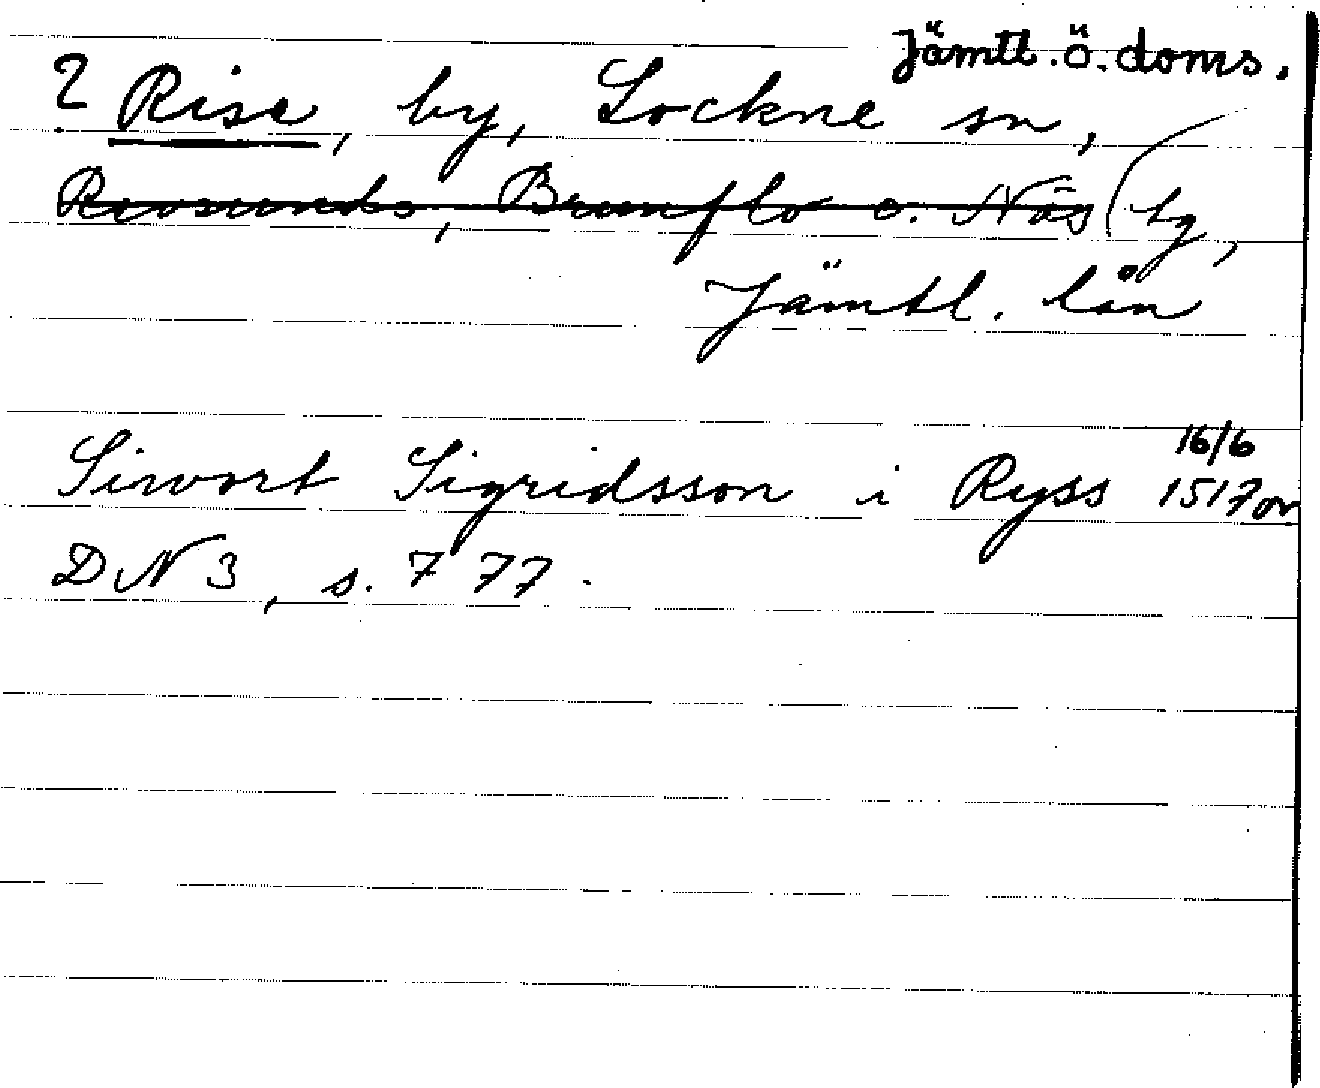 Jämtl. ö. doms.
? Rise, by, Lockne sn,
Revsunds, Brunflo o. Näs tg,
Jämtl. län
16/6
Sirvort Sigridsson i Ryss 1517 or
DN 3, s. 777.